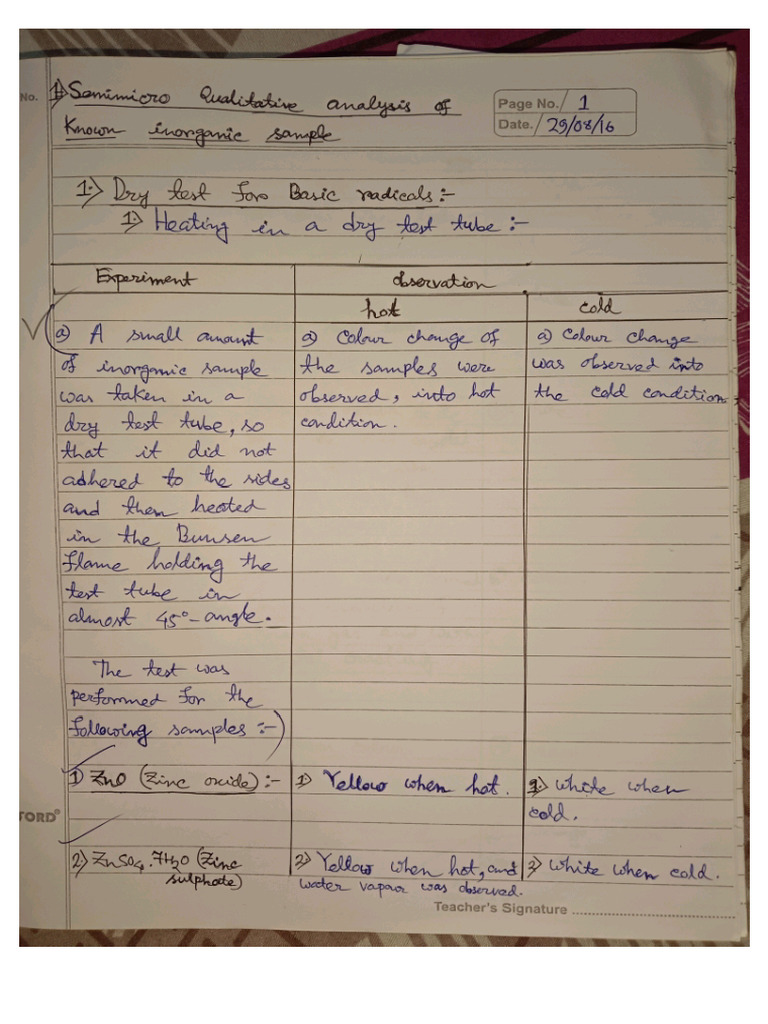 No.
1) Semimicro Qualitative analysis of
Known inorganic sample
Page No. 1
Date. 29/08/16
1.) Dry test for Basic radicals:-
1) Heating in a dry test tube:-
Experiment
observation
hot
cold
a) A small amount
of inorganic sample
was taken in a
dry test tube, so
that it did not
adhered to the sides
and then heated
in the Bunsen
flame holding the
test tube in
almost 45°-angle.
The test was
performed for the
following samples:-
a) Colour change of
the samples were
observed, into hot
condition.
a) Colour change
was observed into
the cold condition.
1) ZnO (Zinc oxide):-
1) Yellow when hot.
1) White when
cold.
TORD
2) ZnSO4.7H2O (Zinc
sulphate)
2) Yellow when hot, and
water vapour was observed.
2) White when cold.
Teacher's Signature